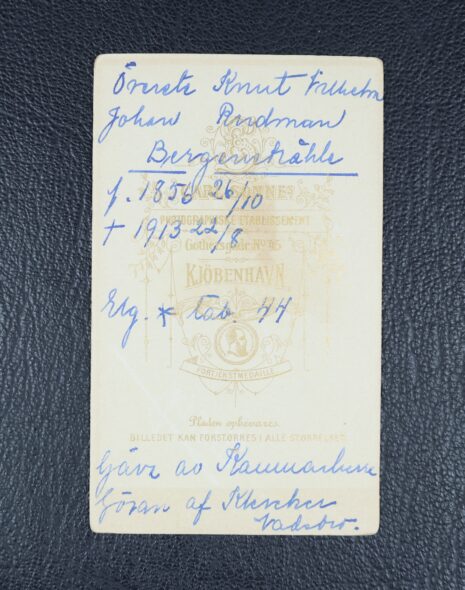 Överste Knut Vilhelm
Johan Rudman
Bergenstråhle
f. 1856 26/10
† 1913 22/8
PHOTOGRAPHISKE ETABLISSEMENT
Gothersgade No 45
KJÖBENHAVN
Elg. * tab. 44
FORTJENSTMEDAILLE
Pladen opbevares.
BILLEDET KAN FORSTÖRRES I ALLE STÖRRELSER
Gåva av Kammarherre
Göran af Klercker
Vadsbro.